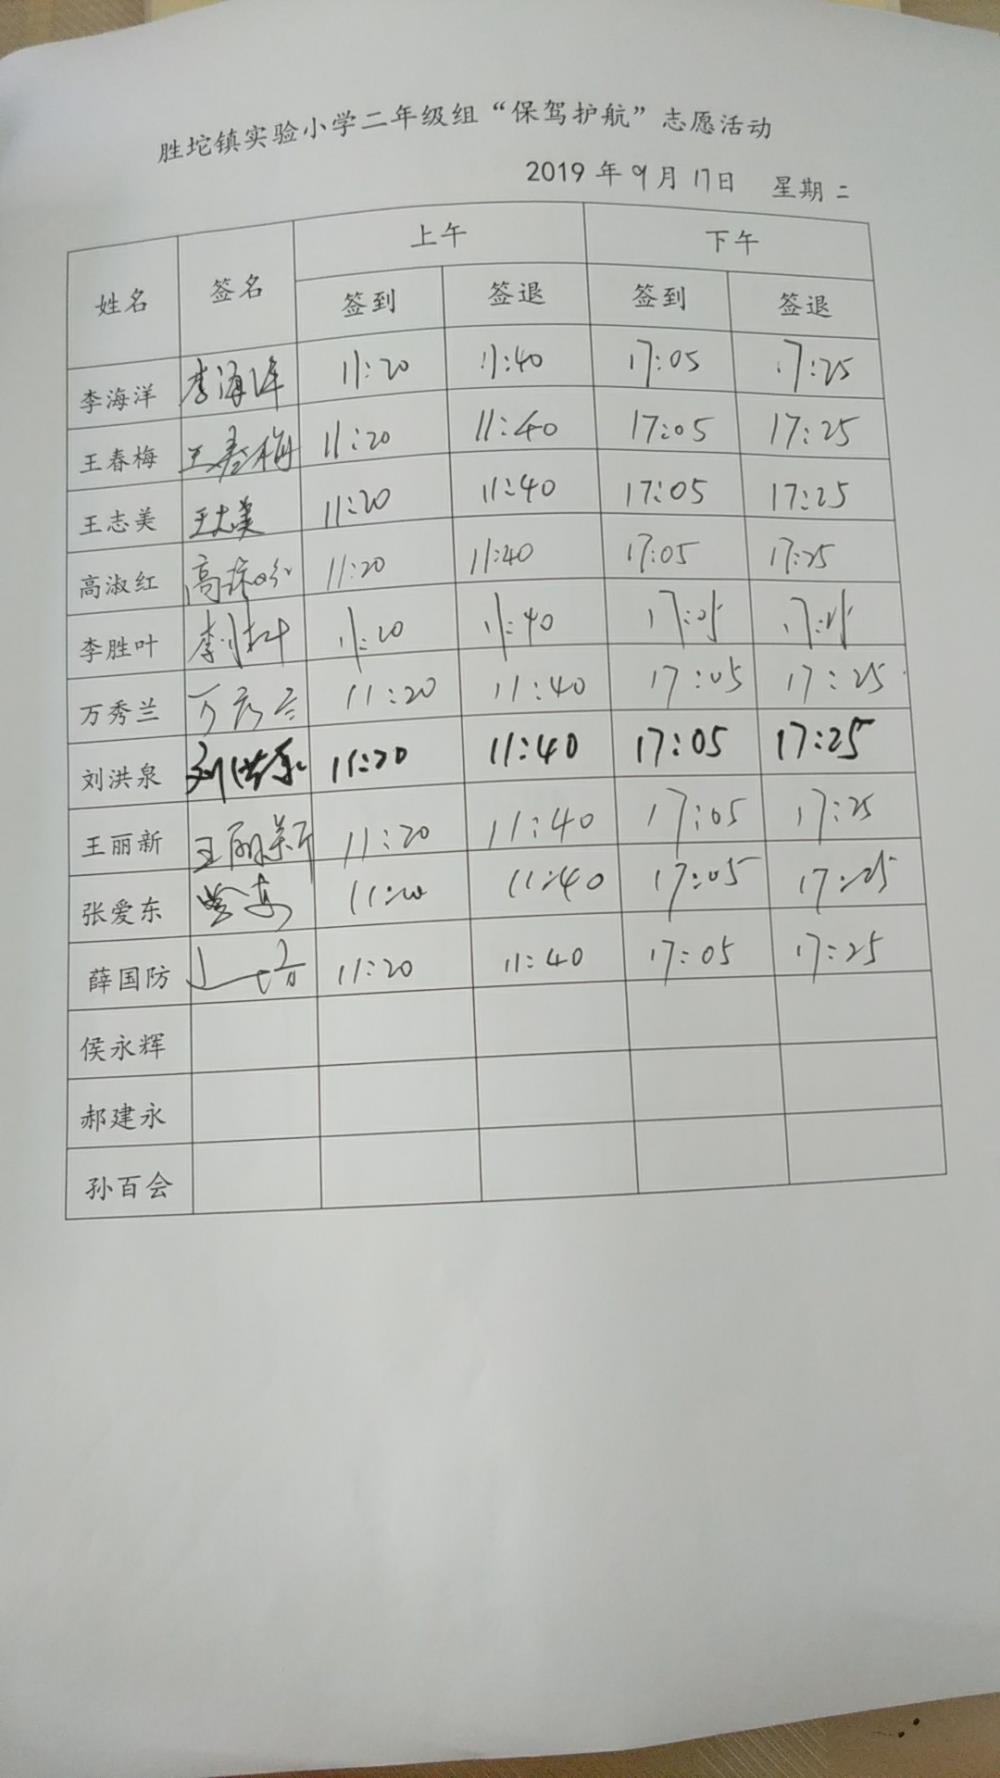 胜坨镇实验小学二年级组“保驾护航”志愿活动
2019 年 9 月 17日 星期 二
姓名 签名 上午 下午
签到 签退 签到 签退
李海洋 李海洋 11:20 11:40 17:05 17:25
王春梅 王春梅 11:20 11:40 17:05 17:25
王志美 王志美 11:20 11:40 17:05 17:25
高淑红 11:20 11:40 17:05 17:25
李胜叶 李胜叶 11:20 11:40 17:05 17:25
万秀兰 万秀兰 11:20 11:40 17:05 17:25
刘洪泉 刘洪泉 11:20 11:40 17:05 17:25
王丽新 王丽新 11:20 11:40 17:05 17:25
张爱东 11:20 11:40 17:05 17:25
薛国防 11:20 11:40 17:05 17:25
侯永辉
郝建永
孙百会